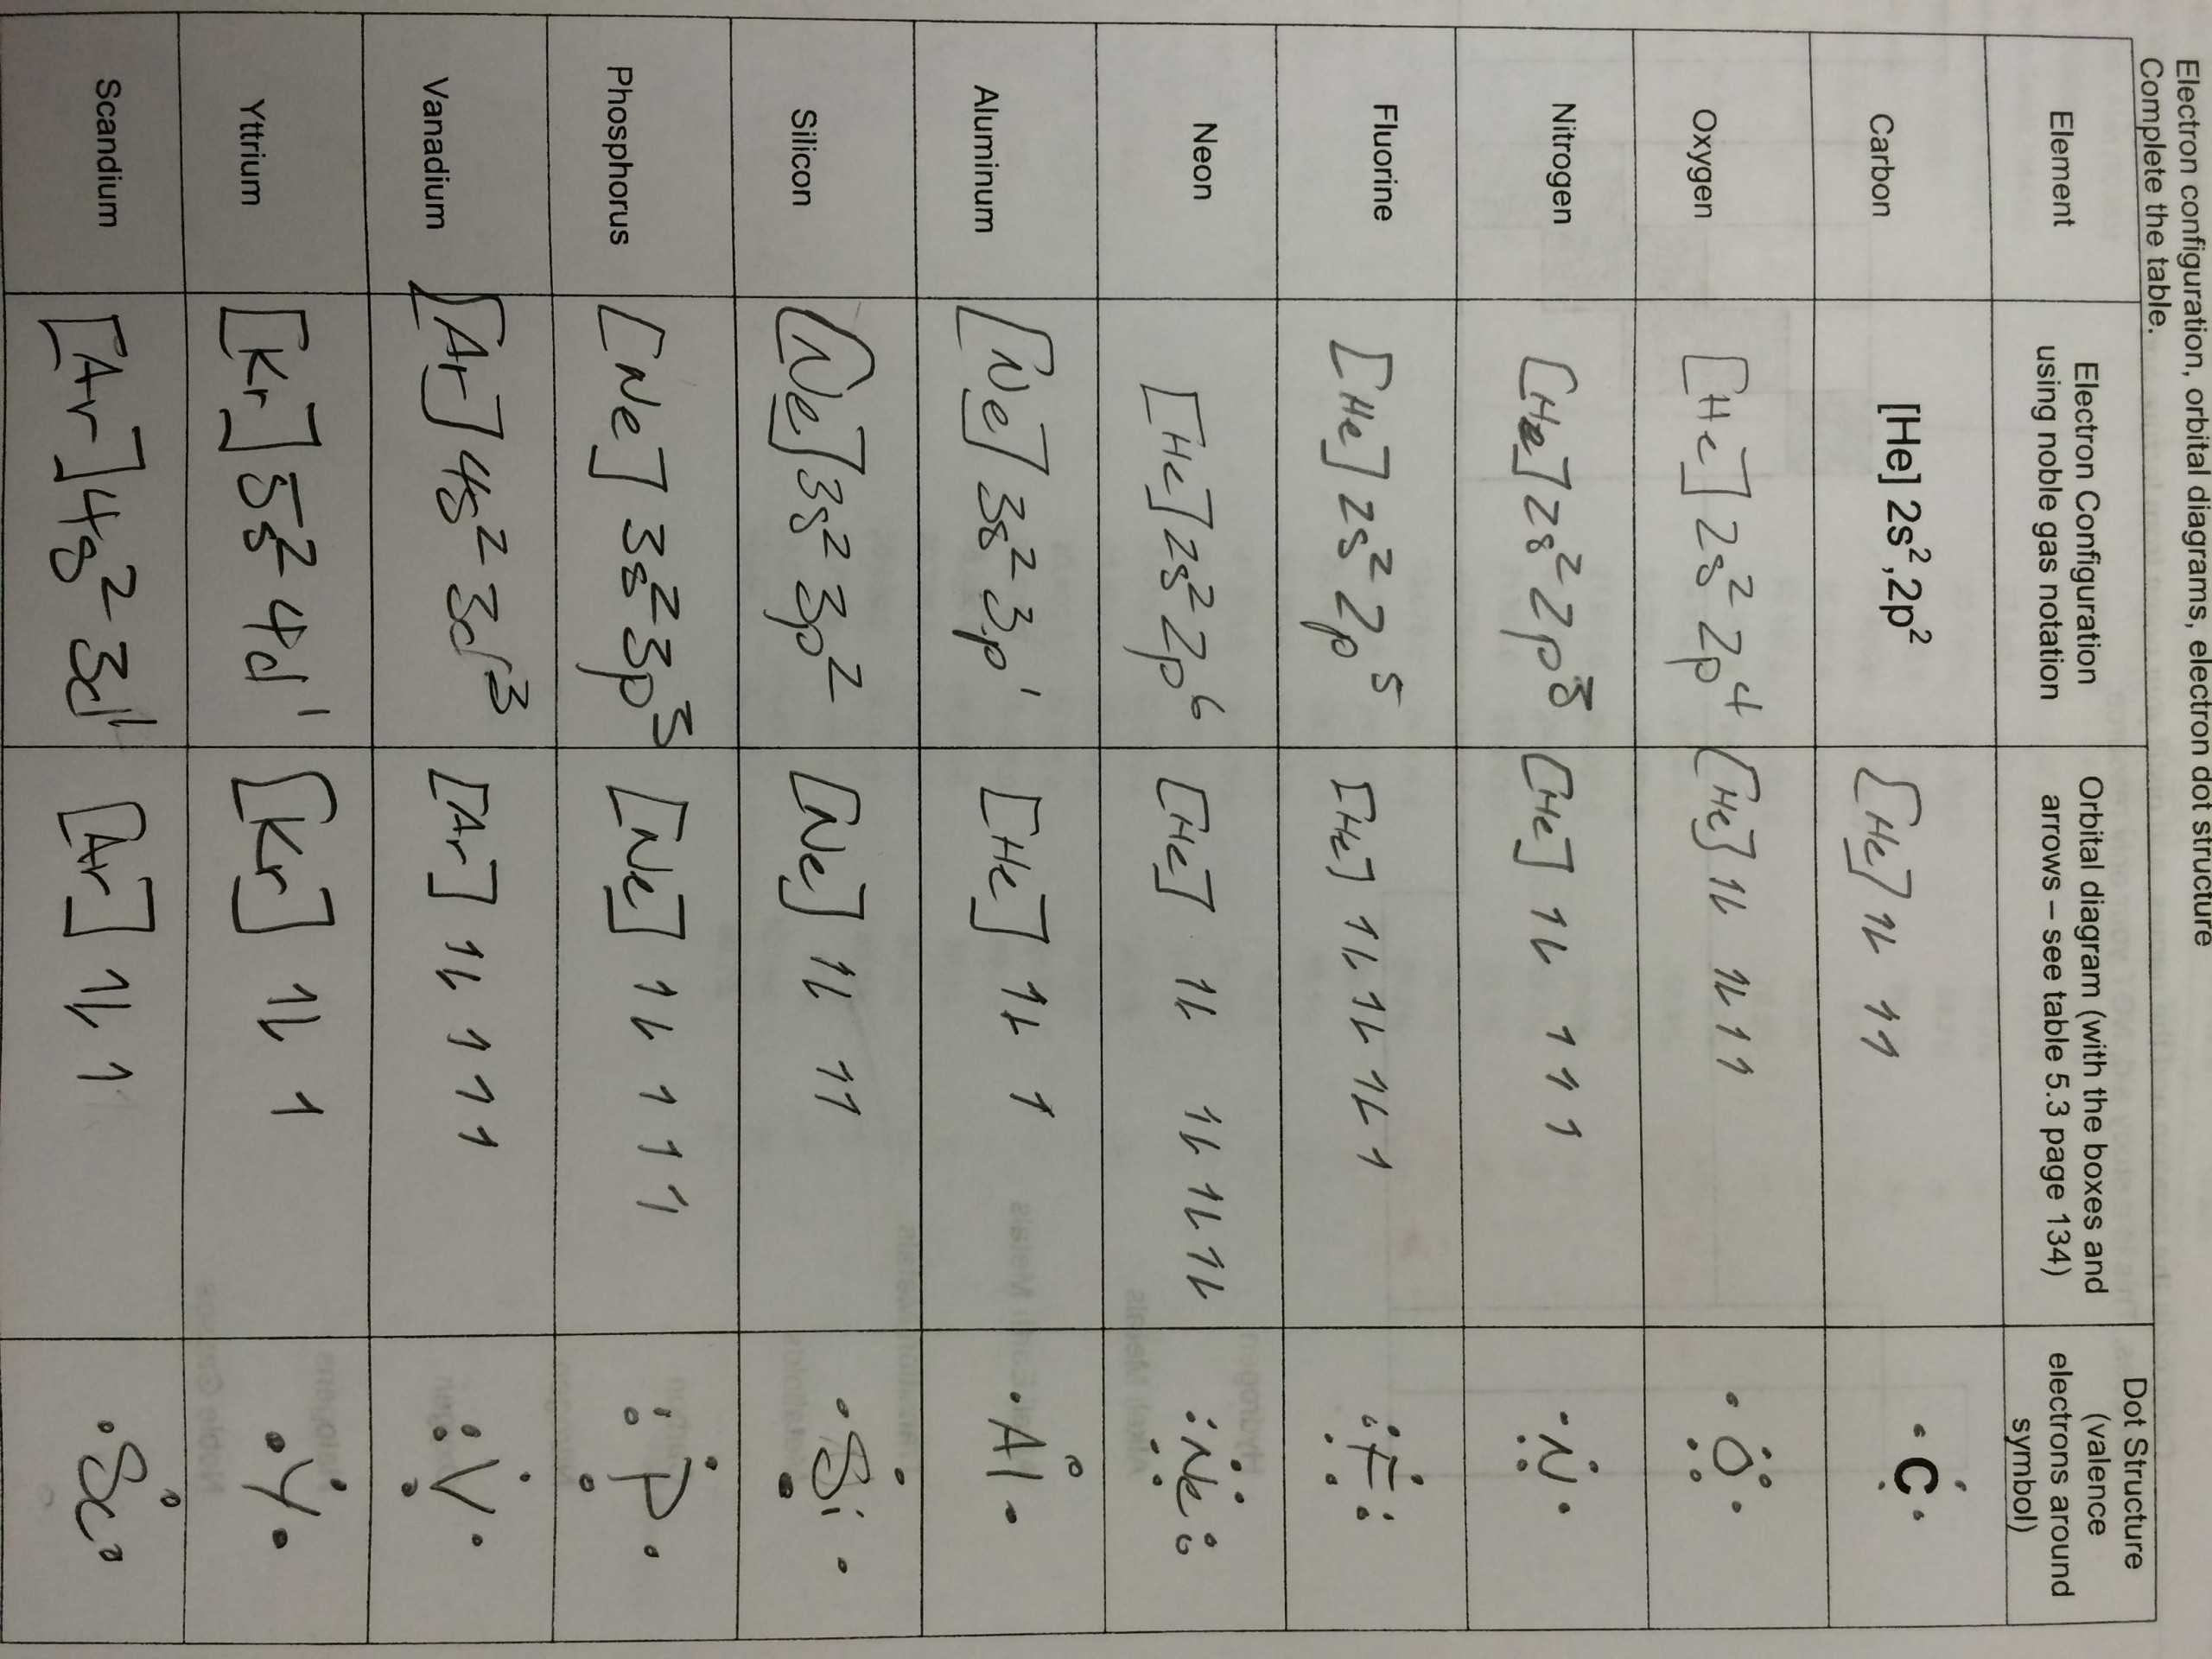 Electron configuration, orbital diagrams, electron dot structure
Complete the table.
Element
Electron Configuration
using noble gas notation
Orbital diagram (with the boxes and
arrows – see table 5.3 page 134)
Dot Structure
(valence
electrons around
symbol)
Carbon
[He] 2s²,2p²
[He] 1L 1 1
C
Oxygen
[He] 2s² 2p⁴
[He] 1L 1L 1 1
O
Nitrogen
[He] 2s² 2p³
[He] 1L 1 1 1
N
Fluorine
[He] 2s² 2p⁵
[He] 1L 1L 1L 1
F
Neon
[He] 2s² 2p⁶
[He] 1L 1L 1L 1L
Ne
Aluminum
[Ne] 3s² 3p¹
[He] 1L 1
Al
Silicon
[Ne] 3s² 3p²
[Ne] 1L 1 1
Si
Phosphorus
[Ne] 3s² 3p³
[Ne] 1L 1 1 1
P
Vanadium
[Ar] 4s² 3d³
[Ar] 1L 1 1 1
V
Yttrium
[Kr] 5s² 4d¹
[Kr] 1L 1
Y
Scandium
[Ar] 4s² 3d¹
[Ar] 1L 1
Sc